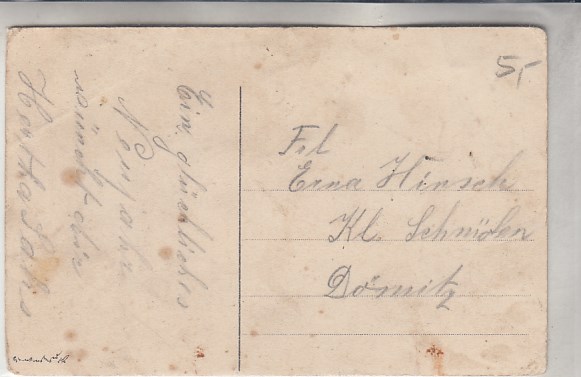 Ein glückliches
Neujahr
wünscht dir
Hertha Pahs
5,-
Frl
Erna Hinsch
Kl. Schmölen
Dömitz